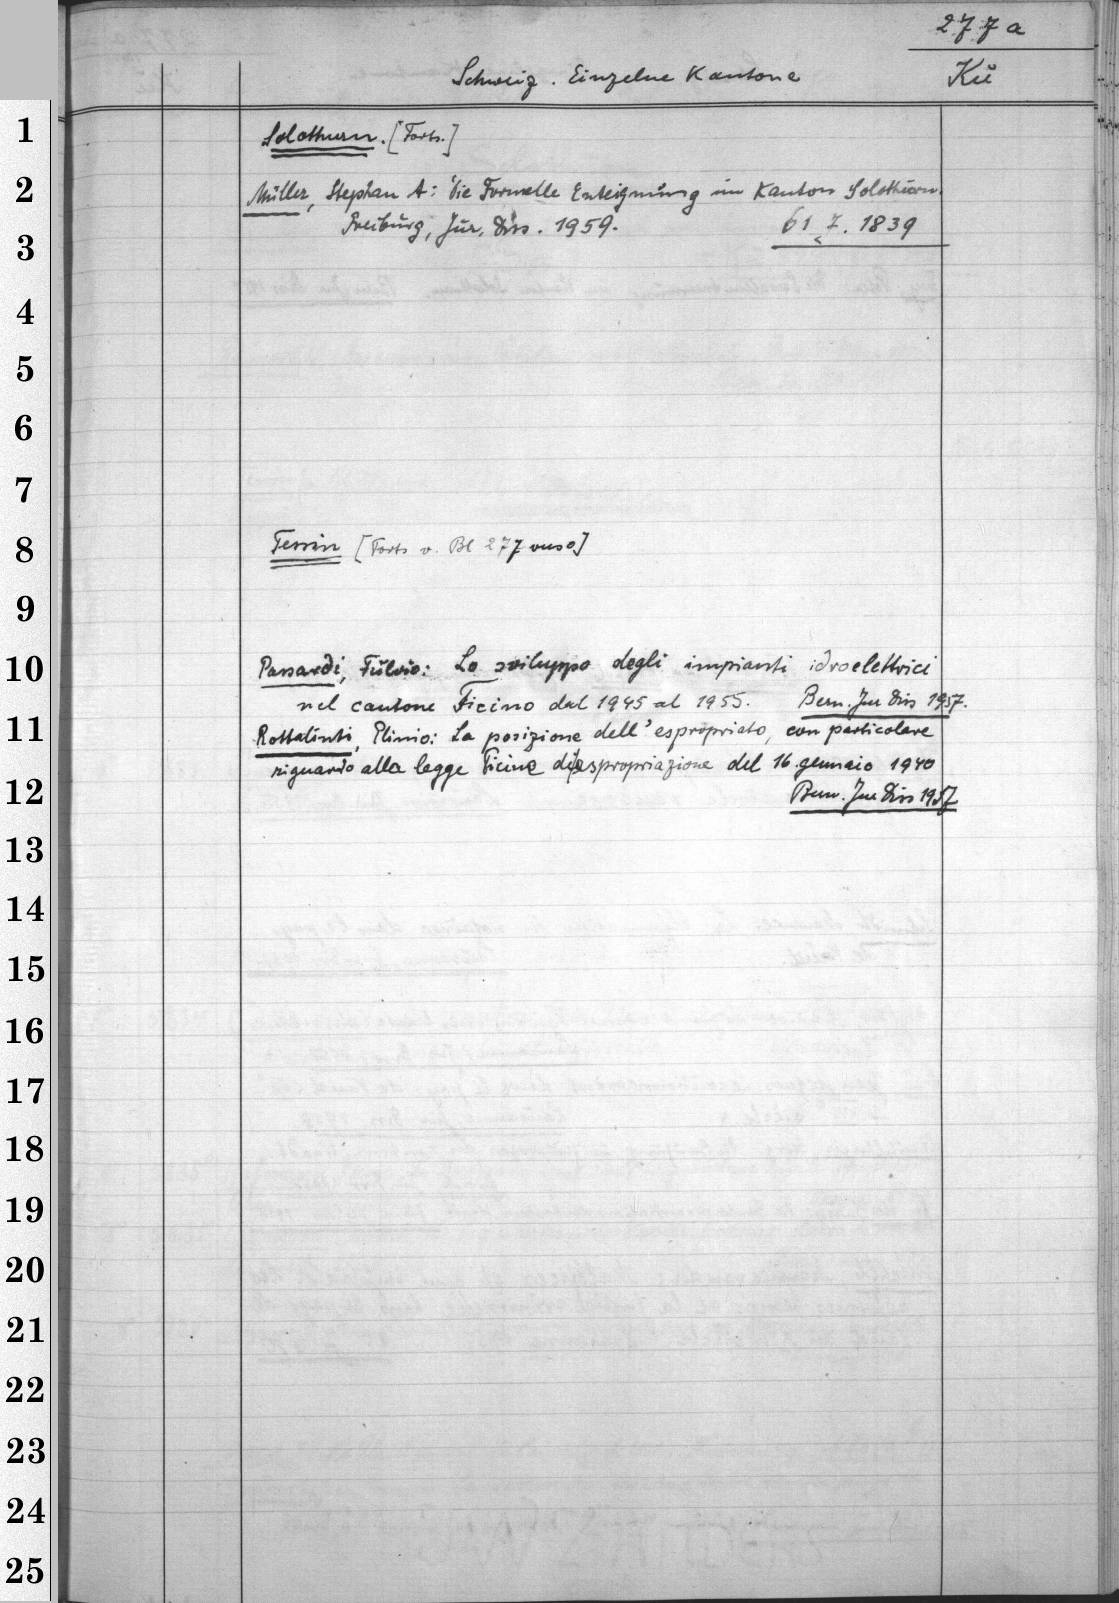 277a
Schweiz. Einzelne Kantone
Kü
1
Solothurn. [Forts.]
2
Müller, Stephan A: Die Formelle Enteignung im Kanton Solothurn.
Freiburg, Jur. Diss. 1959. 61 7. 1839
3
4
5
6
7
8
Tessin [Forts v. Bl 277 verso]
9
10
Passardi, Fulvio: Lo sviluppo degli impianti idroelettrici
nel cantone Ticino dal 1945 al 1955. Bern. Jur Diss 1957.
11
Rottalinti, Plinio: La posizione dell'espropriato, con particolare
riguardo alla legge Ticine di espropriazione del 16 gennaio 1940
12
Bern. Jur Diss 1957
13
14
15
16
17
18
19
20
21
22
23
24
25